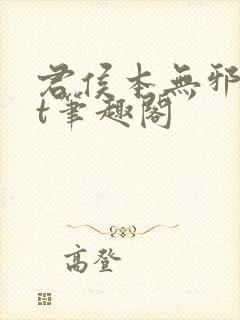 君侯本無邪
t筆趣閣
高登